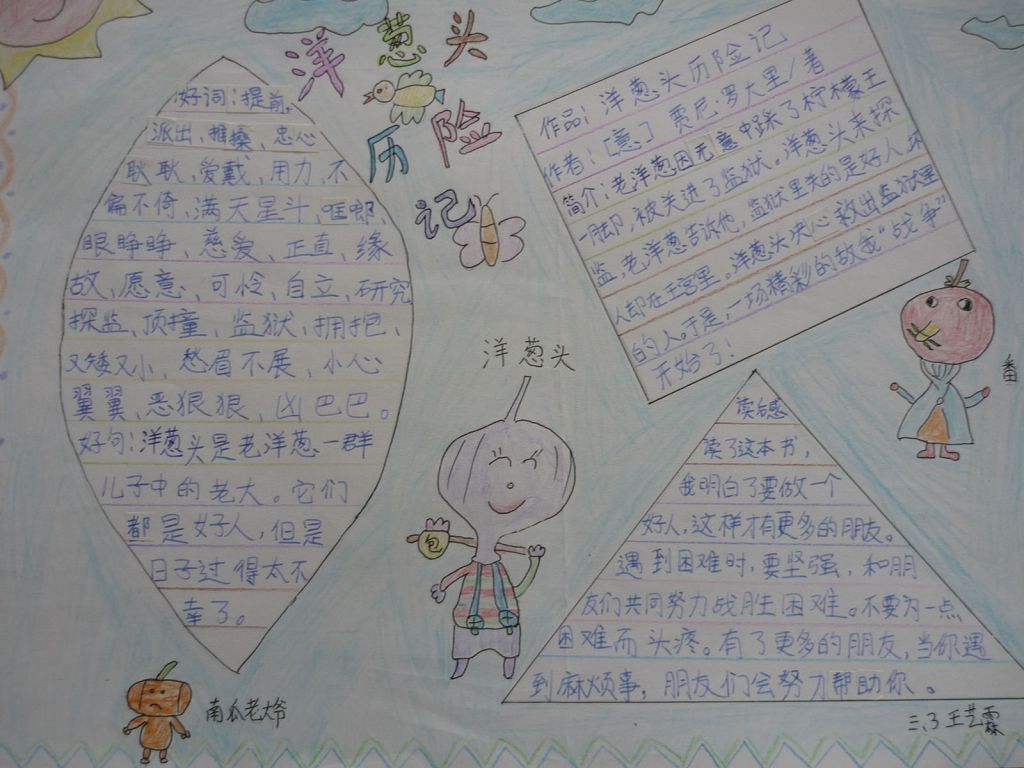 洋葱头
历险
记
好词：提前、
派出、推搡、忠心
耿耿、爱戴、用力、不
偏不倚、满天星斗、哐啷、
眼睁睁、慈爱、正直、缘
故、愿意、可怜、自立、研究
探监、顶撞、监狱、拥抱、
又矮又小、愁眉不展、小心
翼翼、恶狠狠、凶巴巴。
好句：洋葱头是老洋葱一群
儿子中的老大。它们
都是好人，但是
日子过得太不
幸了。
作品：洋葱头历险记
作者：［意］贾尼·罗大里/著
简介：老洋葱因无意中踩了柠檬王
一脚，被关进了监狱。洋葱头来探
监，老洋葱告诉他，监狱里关的是好人，坏
人却在王宫里。洋葱头决心救出监狱里
的人。于是，一场精彩的敌我“战争”
开始了！
洋葱头
包
番
读后感
读了这本书，
我明白了要做一个
好人，这样才有更多的朋友。
遇到困难时，要坚强，和朋
友们共同努力战胜困难。不要为一点
困难而头疼。有了更多的朋友，当你遇
到麻烦事，朋友们会努力帮助你。
南瓜老大爷
三、3 王艺霖